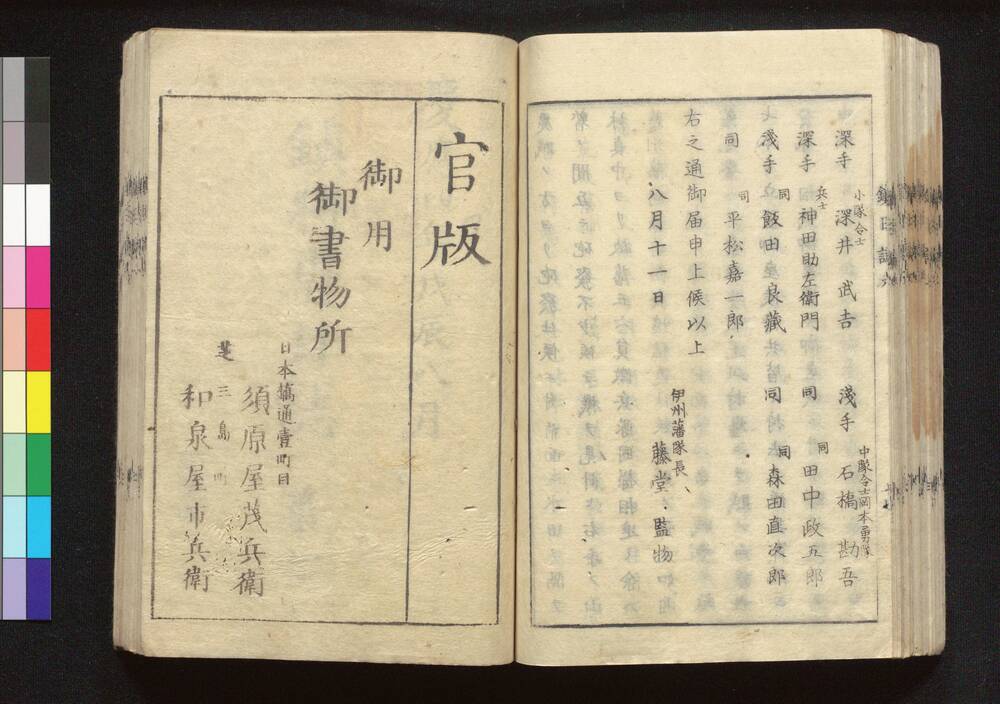 小隊令士
深手 深井武吉
中隊令士岡本勇隊
淺手 石橋勘吾
兵士
深手 神田助左衞門
同
同 田中政五郎
同
淺手 飯田座良藏
同
同 森田直次郎
司
同 平松嘉一郎
右之通御届申上候以上
八月十一日
伊州藩隊長
藤堂監物
官版
御用
御書物所
日本橋通壹町目
須原屋茂兵衞
芝三島町
和泉屋市兵衞